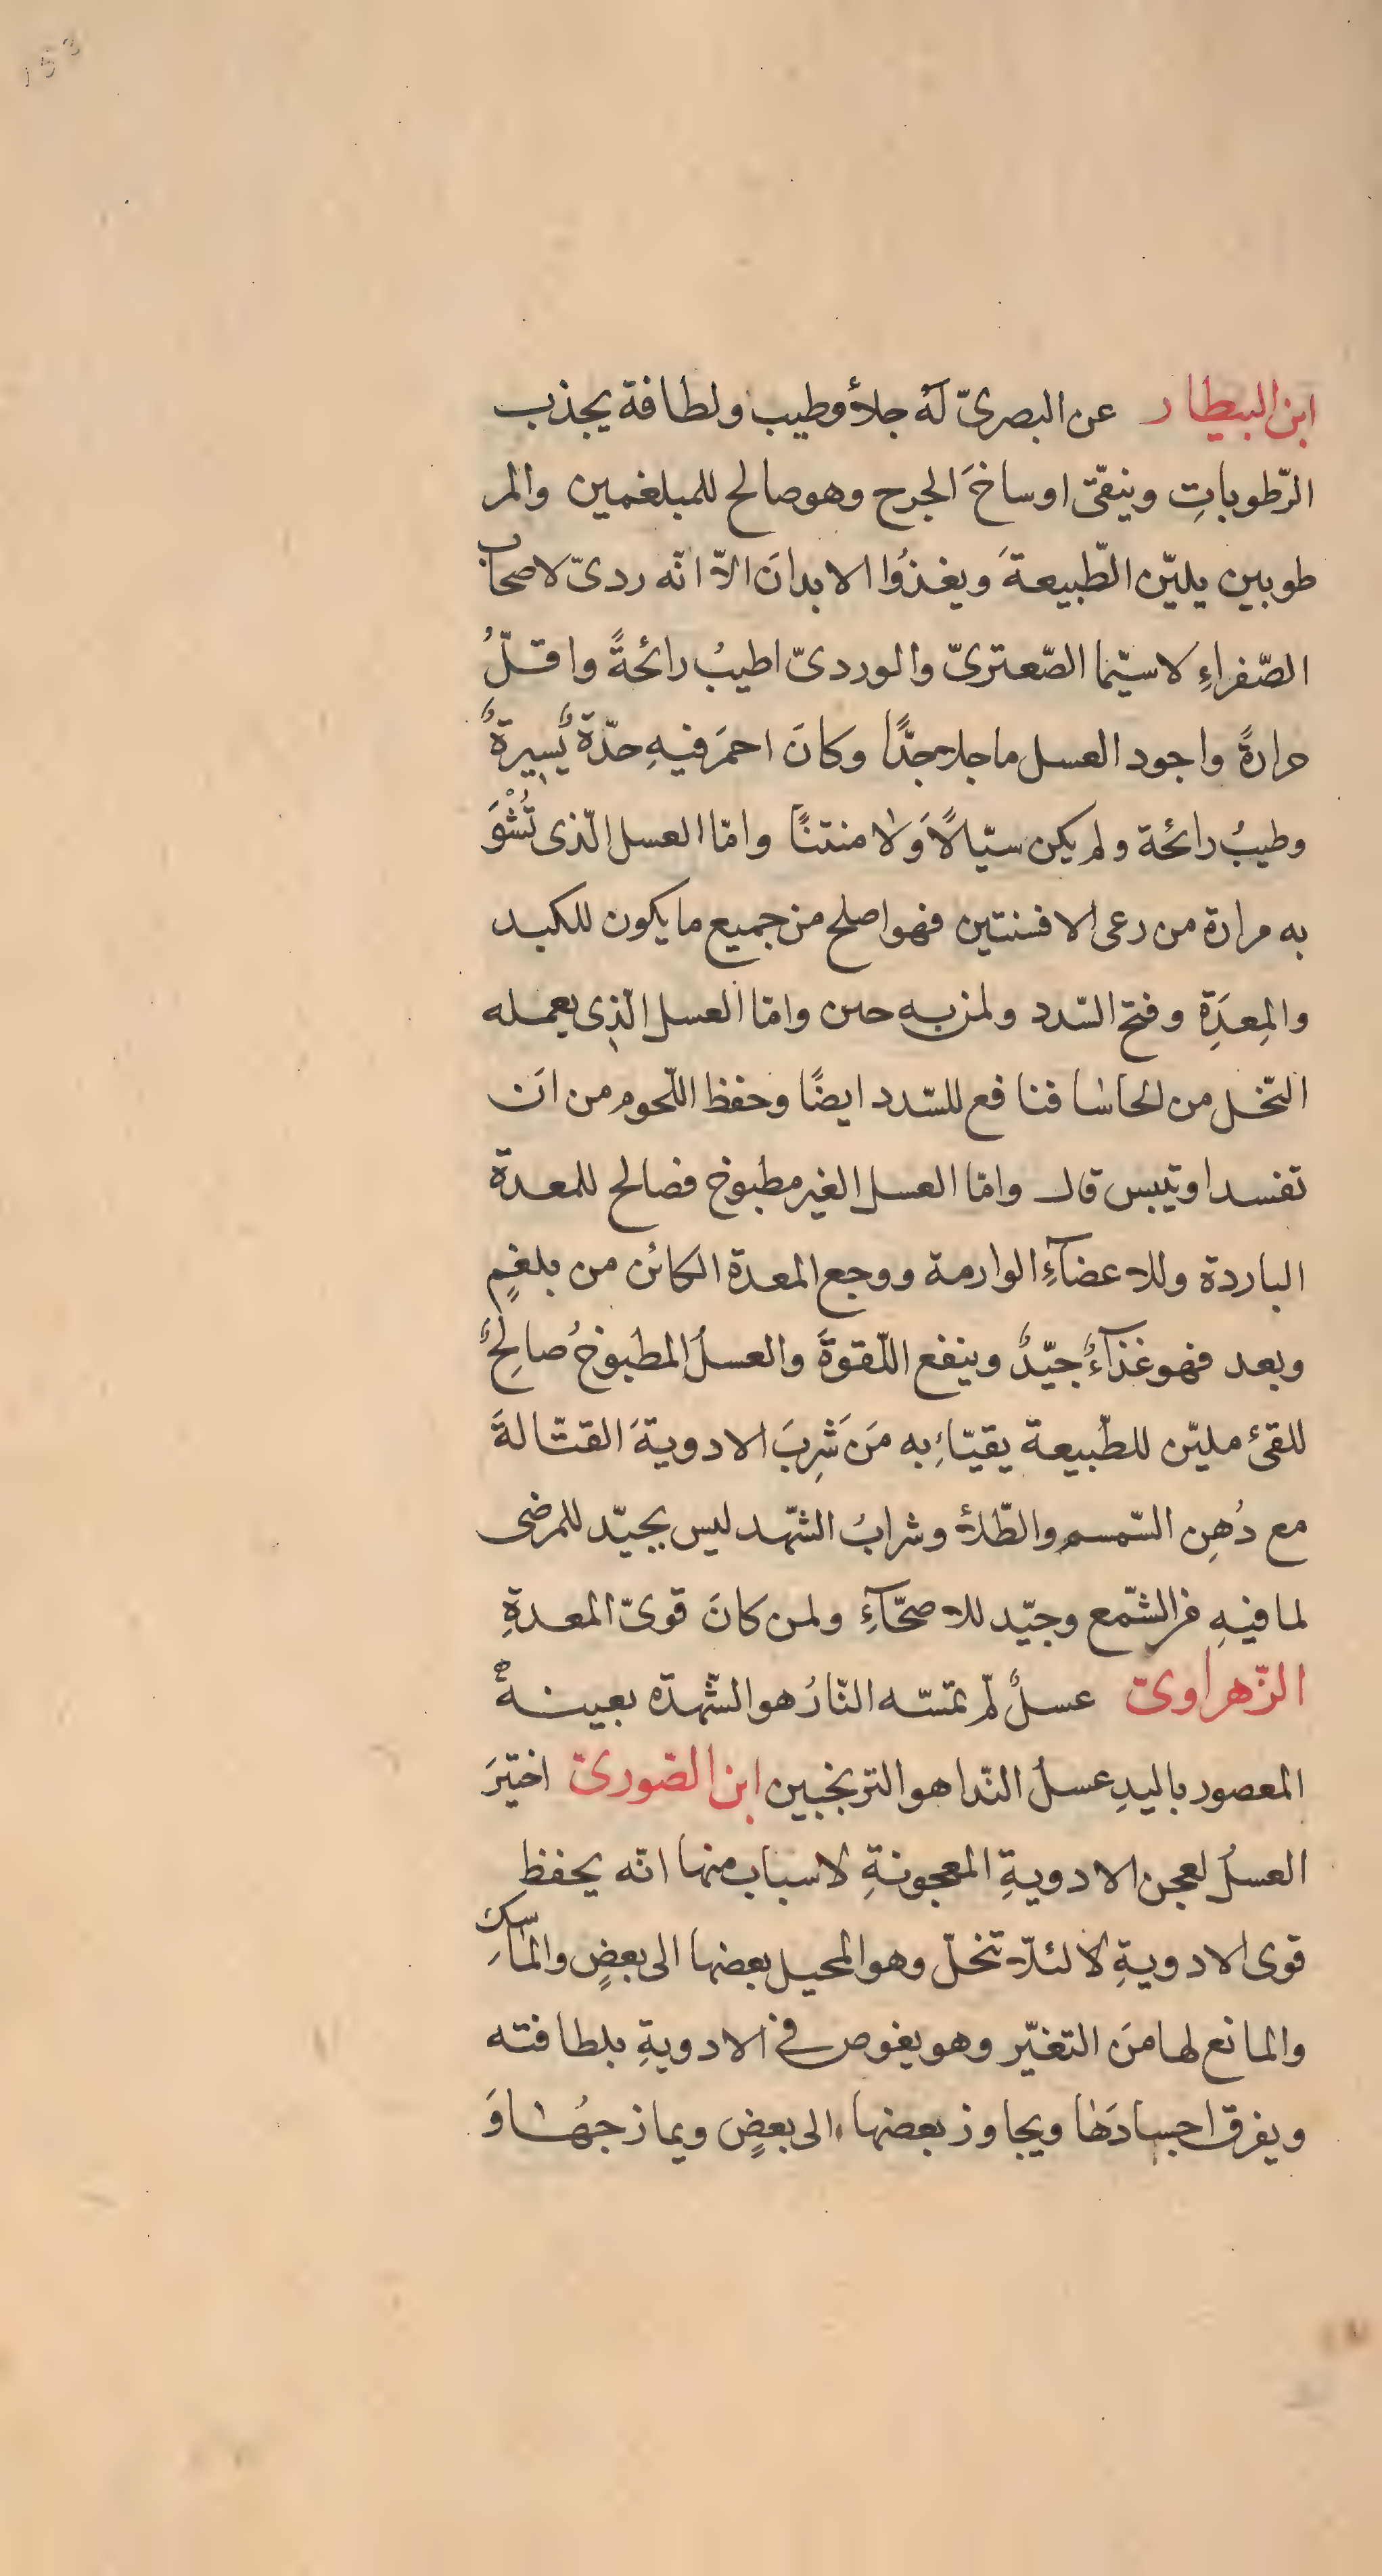 153
ابن البيطار عن البصرىّ لهُ جلأ وطيب ولطافة يجذب
الرّطوباتِ وينقّى اوساخَ الجرح وهو صالح للمبلغمين والمر
طوبين يليّن الطّبيعةَ ويغذُوا الابدانَ الاّ انّه ردىّ لاصحاب
الصّفراءِ لاسيّما الصّعترىّ والوردىّ اطيبُ رائحةً واقلّ
حرارةً واجود العسل ما جلا جدًّا وكانَ احمرَ فيهِ حدّةٌ يسيرةٌ
وطيبُ رائحة ولم يكن سيّالاً وَلا منتنًا وامّا العسل الّذى تُشْوَ
به مرارة من رعى الافسنتين فهو اصلح من جميع ما يكون للكبد
والمِعدَةِ وفتح السّدد ولمن به حبن وامّا العسل الّذِى يعمله
النّحل من الحاشا فنافع للسّدد ايضًا وحفظ اللّحوم من ان
تفسد او تيبس قال وامّا العسل الغير مطبوخ فصالح للمعدة
الباردة وللاعضآءِ الوارمة ووجع المعدة الكائن من بلغمٍ
وبعد فهو غذآءٌ جيّدٌ وينفع اللّقوةَ والعسلُ المطبوخُ صالِحٌ
للقئ مليّن للطّبيعة يقيّاءِ به مَن شَرِبَ الادويةَ القتّالةَ
مع دُهِن السّمسم والطّلأ وشرابُ الشّهد ليس بجيّد للمرضى
لما فيهِ من الشّمع وجيّد للاصحّآءِ ولمن كانَ قوىّ المعدةِ
الزّهراوىّ عسلٌ لم تمسّه النّارُ هو الشّهدّه بعينهْ
المعصور باليدِ عسلُ النّدا هو الترنجبين ابن الصّورىّ اختيَرَ
العسلُ لعجن الادويةِ المعجونةِ لاسباب منها انّه يحفظِ
قوى الادويةِ لا لئلاّ تنحلّ وهو المحيل بعضها الى بعضٍ والماسك
والمانع لها منَ التغيّر وهو يغوص فى الادويةِ بلطافته
ويفرق اجسادَها ويجاوز بعضها الى بعضٍ ويمازجهُا وَ